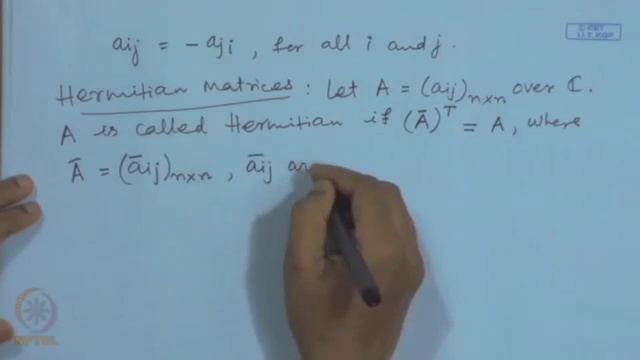 aij = - aji , for all i and j.
Hermitian Matrices : Let A = (aij)n×n over ℂ.
A is called Hermitian if (Ā)ᵀ = A, where
Ā = (āij)n×n , āij ar
© CET
I.I.T. KGP
NPTEL